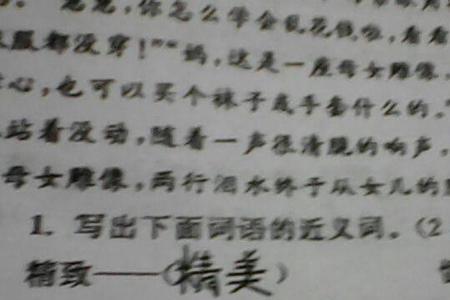 怎么学会乱花钱啦,看看
服都没穿!”“妈,这是一座母女雕像,
心,也可以买个袜子或手套什么的。
站着没动,随着一声很清脆的响声,
母女雕像,两行泪水终于从女儿的
1. 写出下面词语的近义词。(2
精致——(精美)